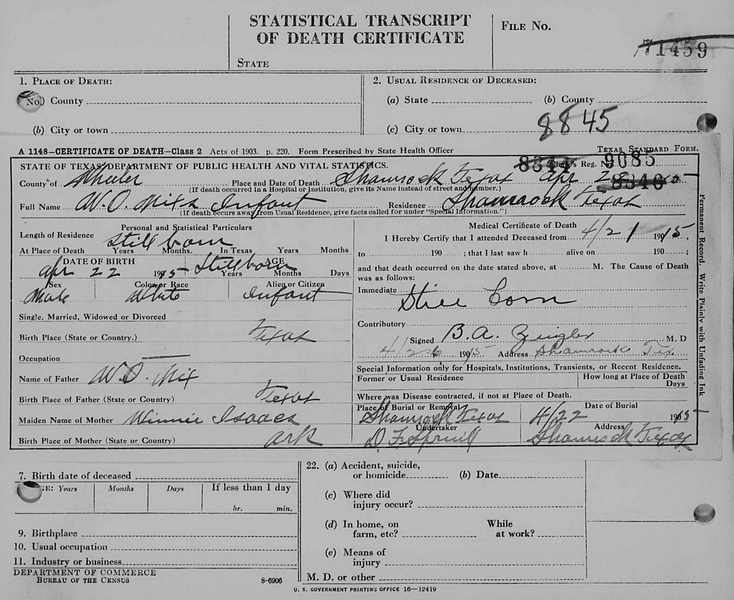 STATISTICAL TRANSCRIPT
OF DEATH CERTIFICATE
STATE
FILE NO.
71459
1. PLACE OF DEATH:
No. County
(b) City or town
2. USUAL RESIDENCE OF DECEASED:
(a) State (b) County
(c) City or town
8845
A 1148—CERTIFICATE OF DEATH—Class 2 Acts of 1903. p. 220. Form Prescribed by State Health Officer TEXAS STANDARD FORM.
STATE OF TEXAS, DEPARTMENT OF PUBLIC HEALTH AND VITAL STATISTICS. Reg. No. 9085
County of Wheeler Place and Date of Death Shamrock Texas Apr
(If death occurred in a Hospital or Institution, give its Name instead of street and number.)
Full Name W.O. Mix Infant Residence Shamrock Texas
(If death occurs away from Usual Residence, give facts called for under "Special Information.")
Personal and Statistical Particulars
Length of Residence Still born
At Place of Death Years Months. In Texas Years Months
DATE OF BIRTH AGE
Apr 22 1915 Still born
Years Months Days
Sex Color or Race Alien or Citizen
Male White Infant
Single, Married, Widowed or Divorced
Birth Place (State or Country.) Texas
Occupation
Name of Father W.O. Mix
Birth Place of Father (State or Country) Texas
Maiden Name of Mother Winnie Isaacs
Birth Place of Mother (State or Country) Ark
Medical Certificate of Death
I Hereby Certify that I attended Deceased from 4/21 1915.
to 190 ; that I last saw h alive on 190 ;
and that death occurred on the date stated above, at M. The Cause of Death
was as follows:
Immediate Still born
Contributory
Signed B.A. Zeigler M. D
1905 Address Shamrock Tex.
Special Information only for Hospitals, Institutions, Transients, or Recent Residence.
Former or Usual Residence How long at Place of Death
Days
Where was Disease contracted, if not at Place of Death.
Place of Burial or Removal Date of Burial
Shamrock Texas 4/22 1915
Undertaker Address
Shamrock Texas
Permanent Record. Write Plainly with Unfading Ink
7. Birth date of deceased
AGE: Years Months Days If less than 1 day
hr. min.
9. Birthplace
10. Usual occupation
11. Industry or business
DEPARTMENT OF COMMERCE
BUREAU OF THE CENSUS
8-6906
22. (a) Accident, suicide,
or homicide (b) Date
(c) Where did
injury occur?
(d) In home, on
farm, etc? While
at work?
(e) Means of
injury
M. D. or other
U. S. GOVERNMENT PRINTING OFFICE 16—12419